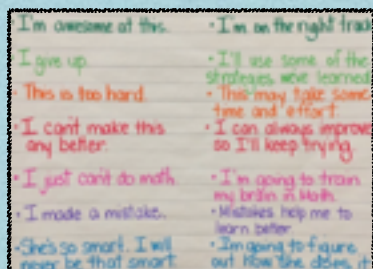 I'm awesome at this.
I give up.
• This is too hard.
• I can't make this
any better.
• I just can't do math.
• I made a mistake.
• She's so smart. I will
never be that smart.
• I'm on the right track
• I'll use some of the
strategies we've learned
• This may take some
time and effort.
• I can always improve
so I'll keep trying.
• I'm going to train
my brain in Math.
• Mistakes help me to
learn better.
• I'm going to figure
out how she does it